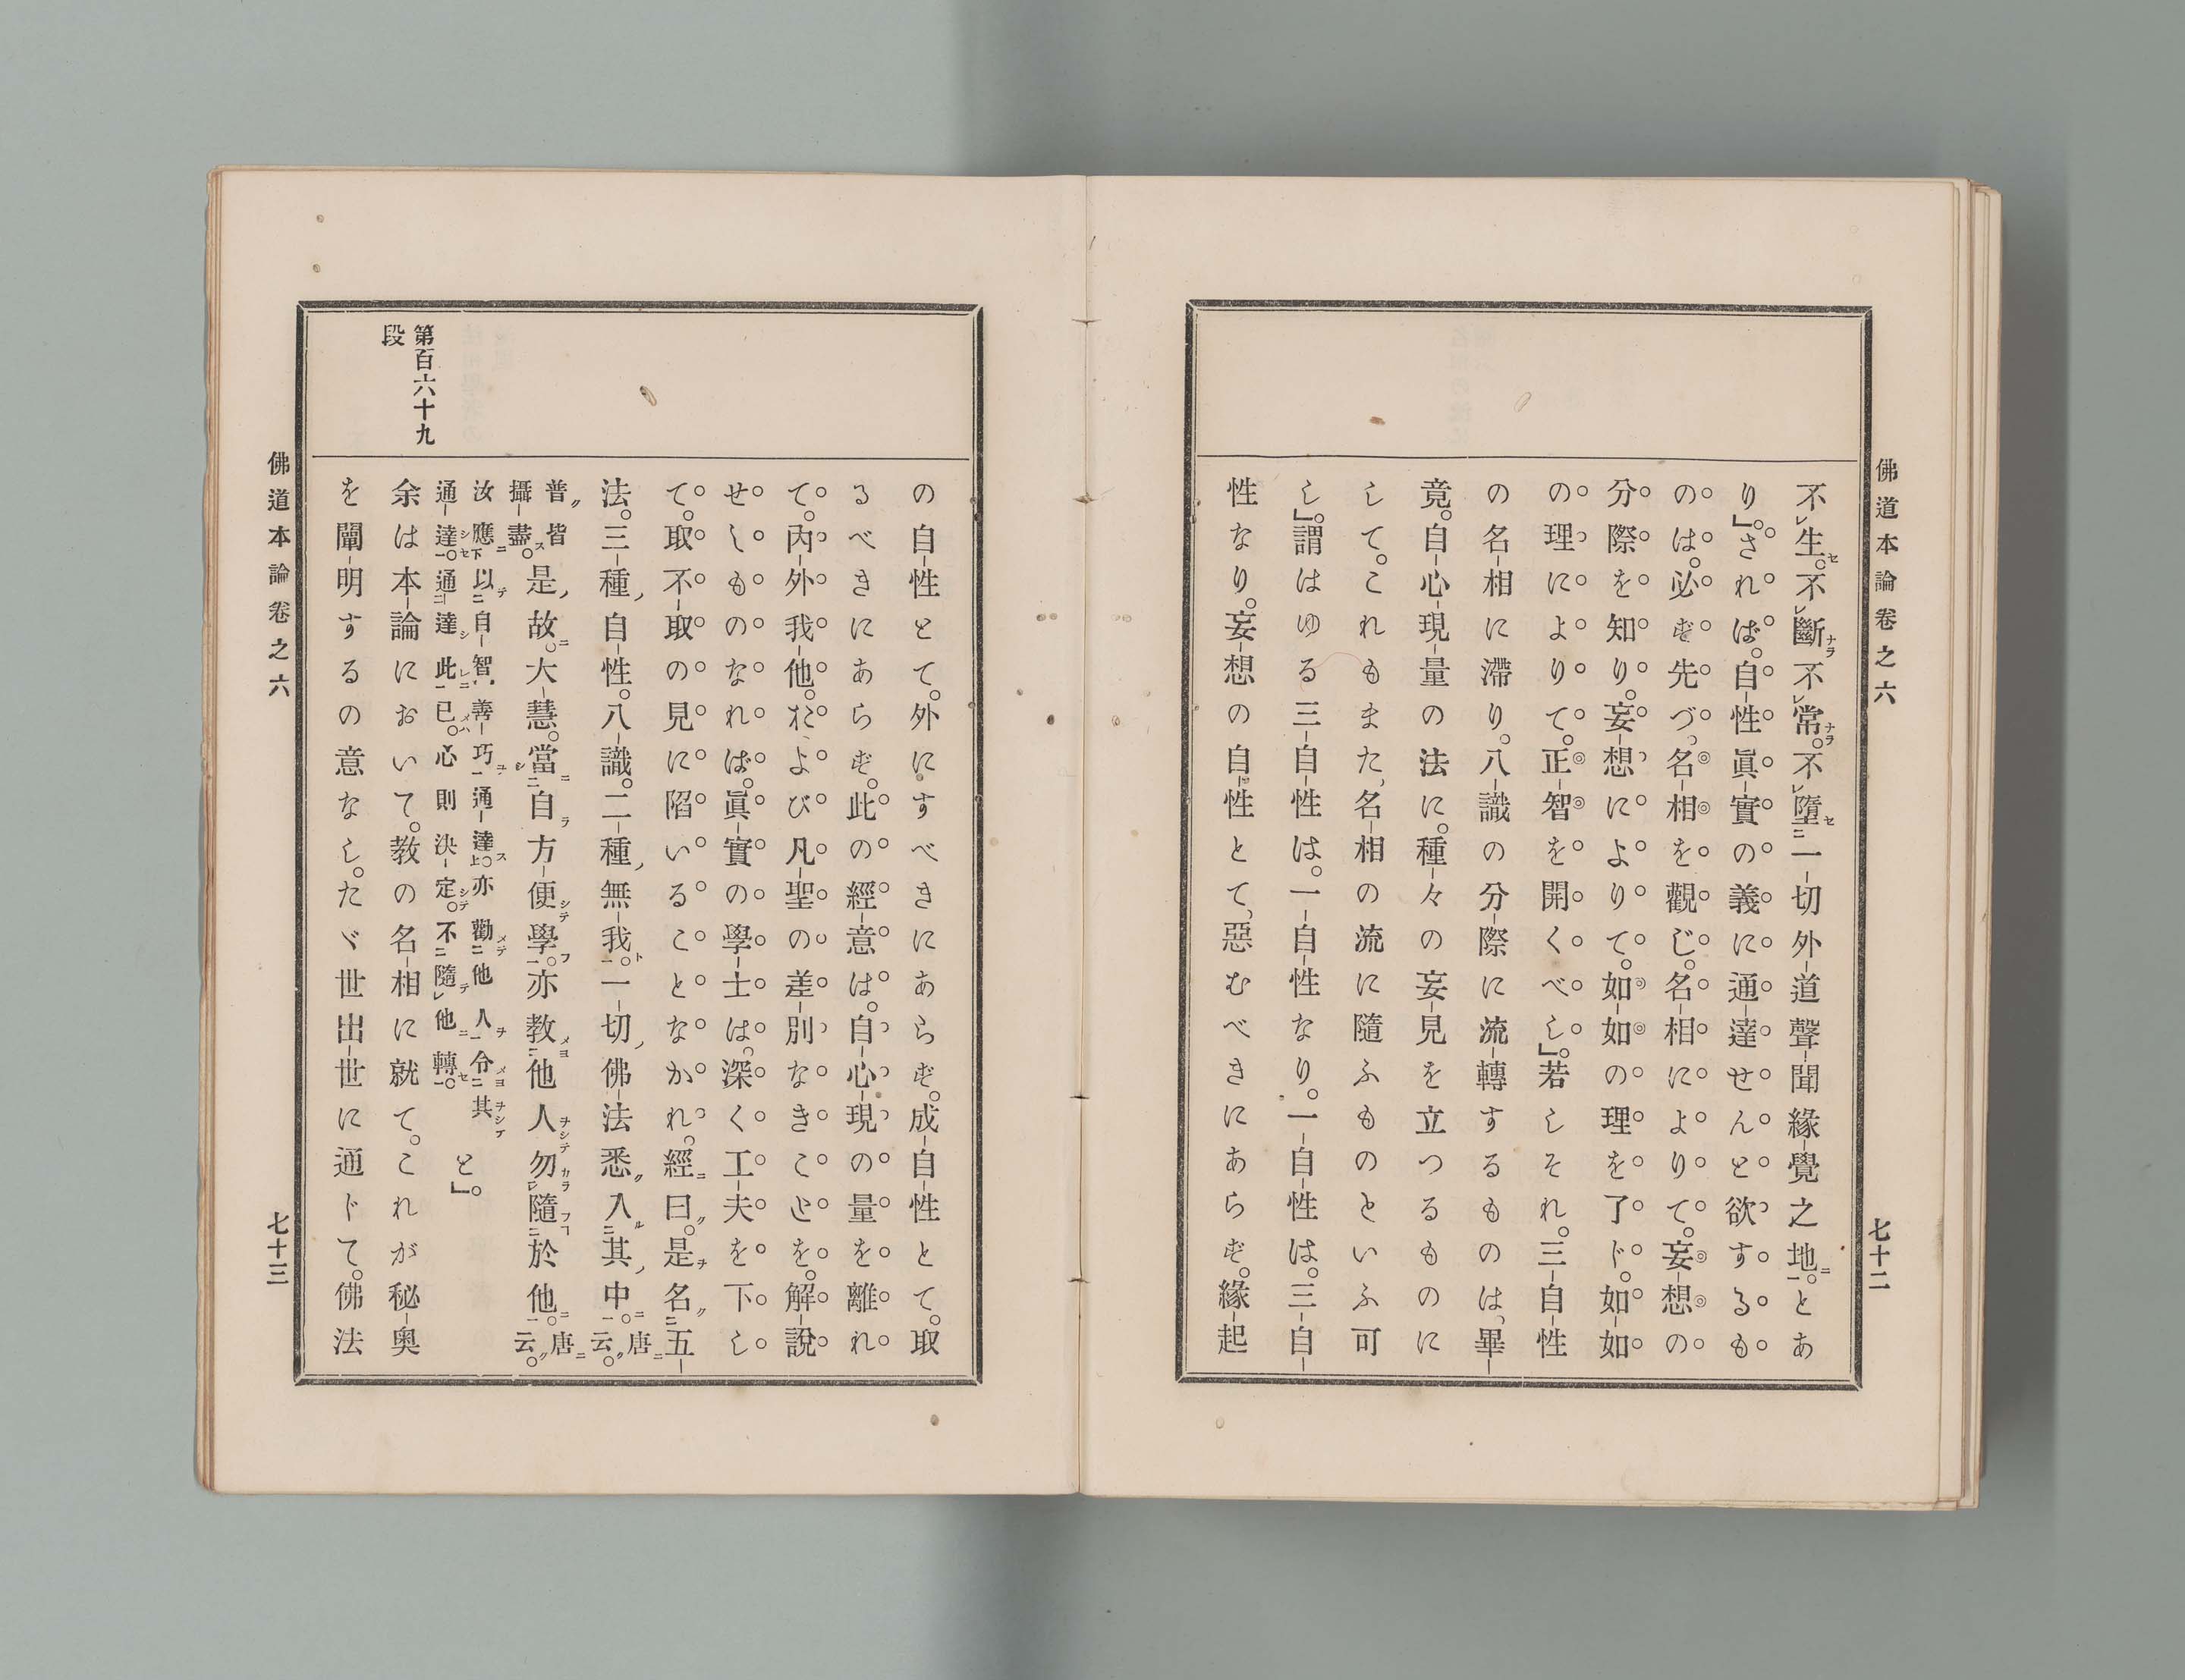 佛道本論卷之六
七十二
不生。不斷不常。不墮一切外道聲聞緣覺之地。とあ
り」。されば。自性眞實の義に通達せんと欲するも
のは。必ず先づ、名相を觀じ。名相によりて。妄想の
分際を知り。妄想によりて。如如の理を了ド。如如
の理によりて。正智を開くべし」。若しそれ。三自性
の名相に滯り。八識の分際に流轉するものは、畢
竟。自心現量の法に。種々の妄見を立つるものに
して。これもまた、名相の流に隨ふものといふ可
し」。謂はゆる三自性は。一自性なり。一自性は。三自
性なり。妄想の自性とて、惡むべきにあらず。緣起
の自性とて。外にすべきにあらず。成自性とて。取
るべきにあらず。此の經意は。自心現の量を離れ
て。內外我他。および凡聖の差別なきことを。解說
せしものなれば。眞實の學士は。深く工夫を下し
て。取不取の見に陷いることなかれ。經曰。是名五
法。三種自性。八識。二種無我。一切佛法悉入其中。唐云。
普皆
攝盡。
是故。大慧。當自方便學。亦教他人勿隨於他。唐云。
汝應以自智善巧通達。亦勸他人令其
通達。通達此已。心則決定。不隨他轉。
と」。
第百六十九
段
余は本論において。教の名相に就て。これが秘奥
を闡明するの意なし。たゞ世出世に通ドて。佛法
佛道本論卷之六
七十三